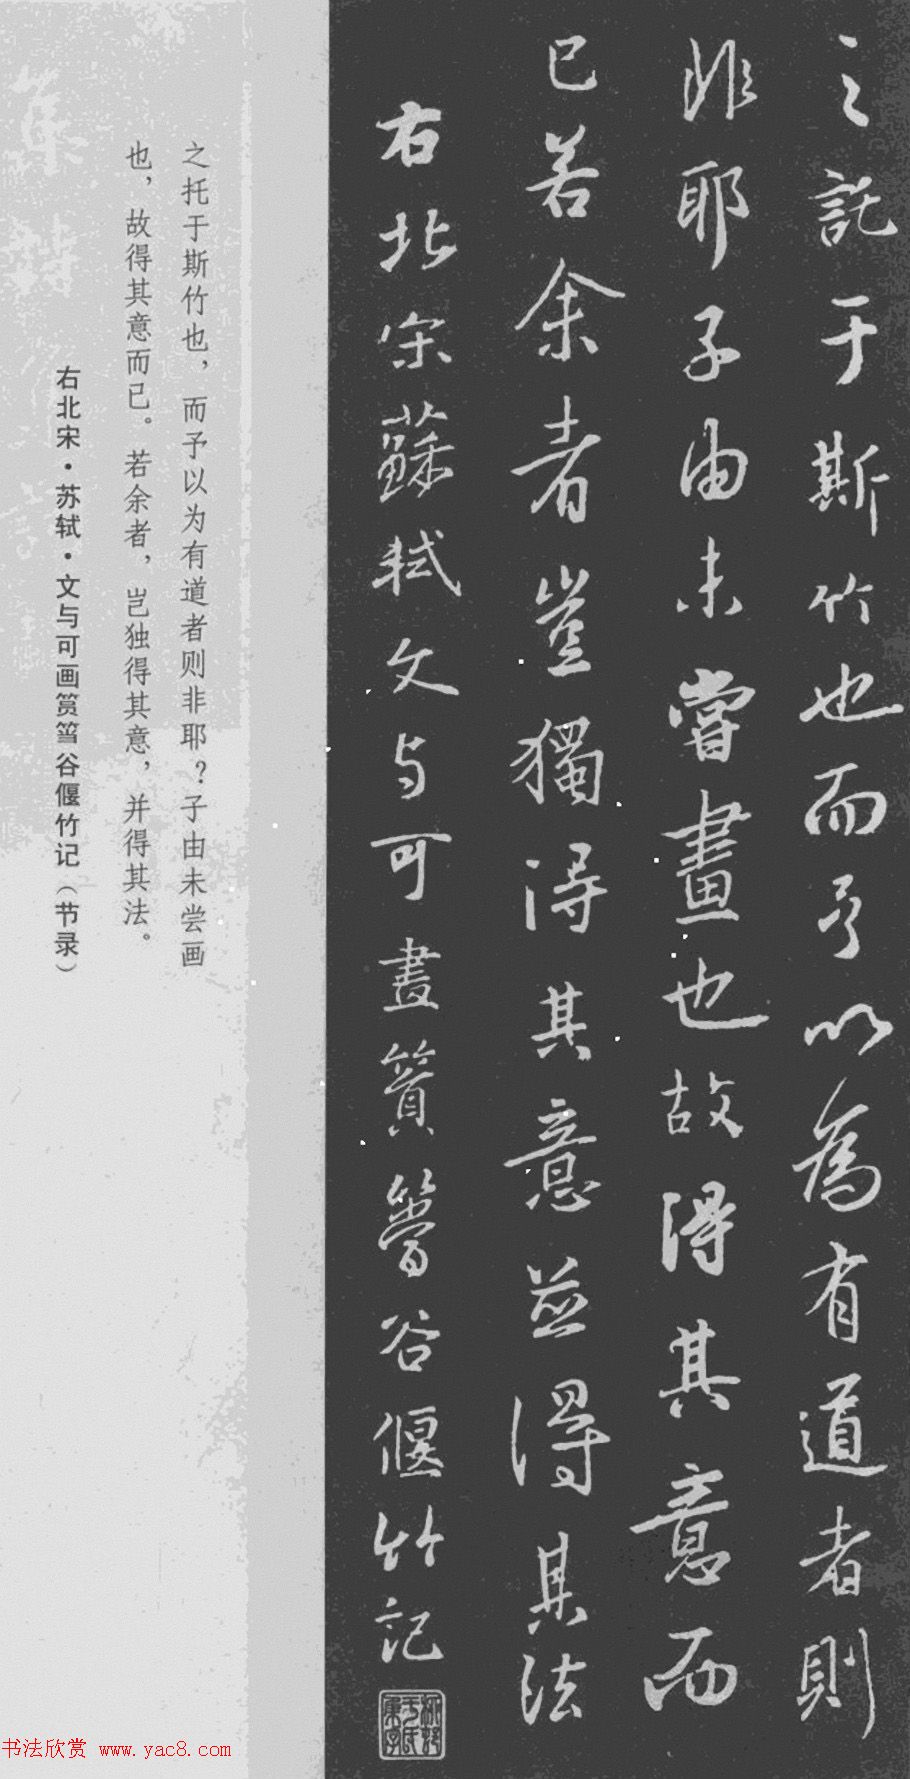 之託于斯竹也而予以為有道者則
非耶子由未嘗畫也故得其意而
已若余者豈獨得其意並得其法
右北宋蘇軾文与可畫篔簹谷偃竹記
之托于斯竹也，而予以为有道者则非耶？子由未尝画
也，故得其意而已。若余者，岂独得其意，并得其法。
右北宋·苏轼·文与可画筼筜谷偃竹记（节录）
书法欣赏 www.yac8.com